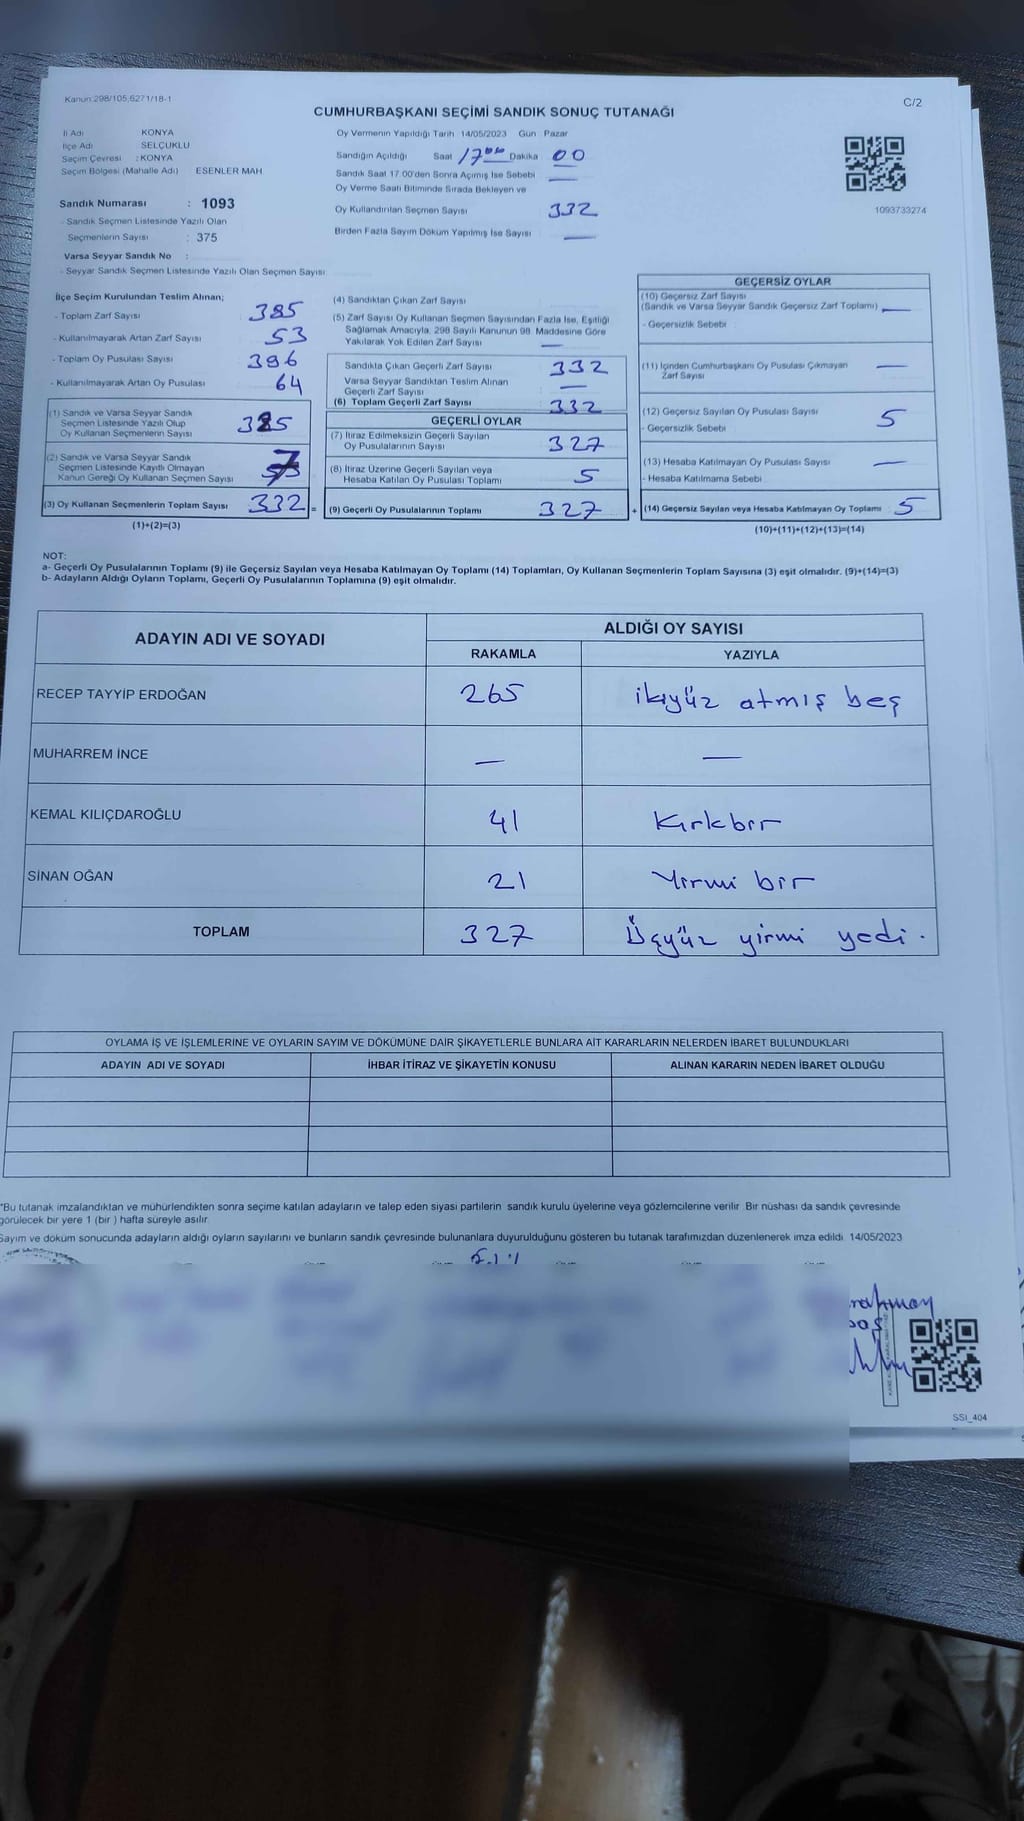 Kanun:298/105,6271/18-1
C/2
CUMHURBAŞKANI SEÇİMİ SANDIK SONUÇ TUTANAĞI
İl Adı KONYA
İlçe Adı SELÇUKLU
Seçim Çevresi : KONYA
Seçim Bölgesi (Mahalle Adı) ESENLER MAH
Sandık Numarası : 1093
- Sandık Seçmen Listesinde Yazılı Olan
Seçmenlerin Sayısı : 375
Varsa Seyyar Sandık No :
- Seyyar Sandık Seçmen Listesinde Yazılı Olan Seçmen Sayısı
Oy Vermenin Yapıldığı Tarih 14/05/2023 Gün Pazar
Sandığın Açıldığı Saat 17 Dakika 00
Sandık Saat 17.00'den Sonra Açılmış İse Sebebi —
Oy Verme Saati Bitiminde Sırada Bekleyen ve
Oy Kullandırılan Seçmen Sayısı 332
Birden Fazla Sayım Döküm Yapılmış İse Sayısı —
1093733274
İlçe Seçim Kurulundan Teslim Alınan;
- Toplam Zarf Sayısı 385
- Kullanılmayarak Artan Zarf Sayısı 53
- Toplam Oy Pusulası Sayısı 396
- Kullanılmayarak Artan Oy Pusulası 64
(1) Sandık ve Varsa Seyyar Sandık
Seçmen Listesinde Yazılı Olup
Oy Kullanan Seçmenlerin Sayısı 325
(2) Sandık ve Varsa Seyyar Sandık
Seçmen Listesinde Kayıtlı Olmayan
Kanun Gereği Oy Kullanan Seçmen Sayısı 7
(3) Oy Kullanan Seçmenlerin Toplam Sayısı 332 =
(1)+(2)=(3)
(4) Sandıktan Çıkan Zarf Sayısı
(5) Zarf Sayısı Oy Kullanan Seçmen Sayısından Fazla İse, Eşitliği
Sağlamak Amacıyla, 298 Sayılı Kanunun 98. Maddesine Göre
Yakılarak Yok Edilen Zarf Sayısı —
Sandıkta Çıkan Geçerli Zarf Sayısı 332
Varsa Seyyar Sandıktan Teslim Alınan
Geçerli Zarf Sayısı —
(6) Toplam Geçerli Zarf Sayısı 332
GEÇERLİ OYLAR
(7) İtiraz Edilmeksizin Geçerli Sayılan
Oy Pusulalarının Sayısı 327
(8) İtiraz Üzerine Geçerli Sayılan veya
Hesaba Katılan Oy Pusulası Toplamı 5
(9) Geçerli Oy Pusulalarının Toplamı 327 +
GEÇERSİZ OYLAR
(10) Geçersiz Zarf Sayısı
(Sandık ve Varsa Seyyar Sandık Geçersiz Zarf Toplamı) —
- Geçersizlik Sebebi
(11) İçinden Cumhurbaşkanı Oy Pusulası Çıkmayan
Zarf Sayısı —
(12) Geçersiz Sayılan Oy Pusulası Sayısı 5
- Geçersizlik Sebebi
(13) Hesaba Katılmayan Oy Pusulası Sayısı —
- Hesaba Katılmama Sebebi
(14) Geçersiz Sayılan veya Hesaba Katılmayan Oy Toplamı 5
(10)+(11)+(12)+(13)=(14)
NOT:
a- Geçerli Oy Pusulalarının Toplamı (9) ile Geçersiz Sayılan veya Hesaba Katılmayan Oy Toplamı (14) Toplamları, Oy Kullanan Seçmenlerin Toplam Sayısına (3) eşit olmalıdır. (9)+(14)=(3)
b- Adayların Aldığı Oyların Toplamı, Geçerli Oy Pusulalarının Toplamına (9) eşit olmalıdır.
ADAYIN ADI VE SOYADI ALDIĞI OY SAYISI
RAKAMLA YAZIYLA
RECEP TAYYİP ERDOĞAN 265 ikiyüz atmış beş
MUHARREM İNCE — —
KEMAL KILIÇDAROĞLU 41 Kırkbir
SİNAN OĞAN 21 Yirmi bir
TOPLAM 327 Üçyüz yirmi yedi.
OYLAMA İŞ VE İŞLEMLERİNE VE OYLARIN SAYIM VE DÖKÜMÜNE DAİR ŞİKAYETLERLE BUNLARA AİT KARARLARIN NELERDEN İBARET BULUNDUKLARI
ADAYIN ADI VE SOYADI İHBAR İTİRAZ VE ŞİKAYETİN KONUSU ALINAN KARARIN NEDEN İBARET OLDUĞU
*Bu tutanak imzalandıktan ve mühürlendikten sonra seçime katılan adayların ve talep eden siyasi partilerin sandık kurulu üyelerine veya gözlemcilerine verilir. Bir nüshası da sandık çevresinde
görülecek bir yere 1 (bir ) hafta süreyle asılır.
Sayım ve döküm sonucunda adayların aldığı oyların sayılarını ve bunların sandık çevresinde bulunanlara duyurulduğunu gösteren bu tutanak tarafımızdan düzenlenerek imza edildi. 14/05/2023
rahman
SSI_404